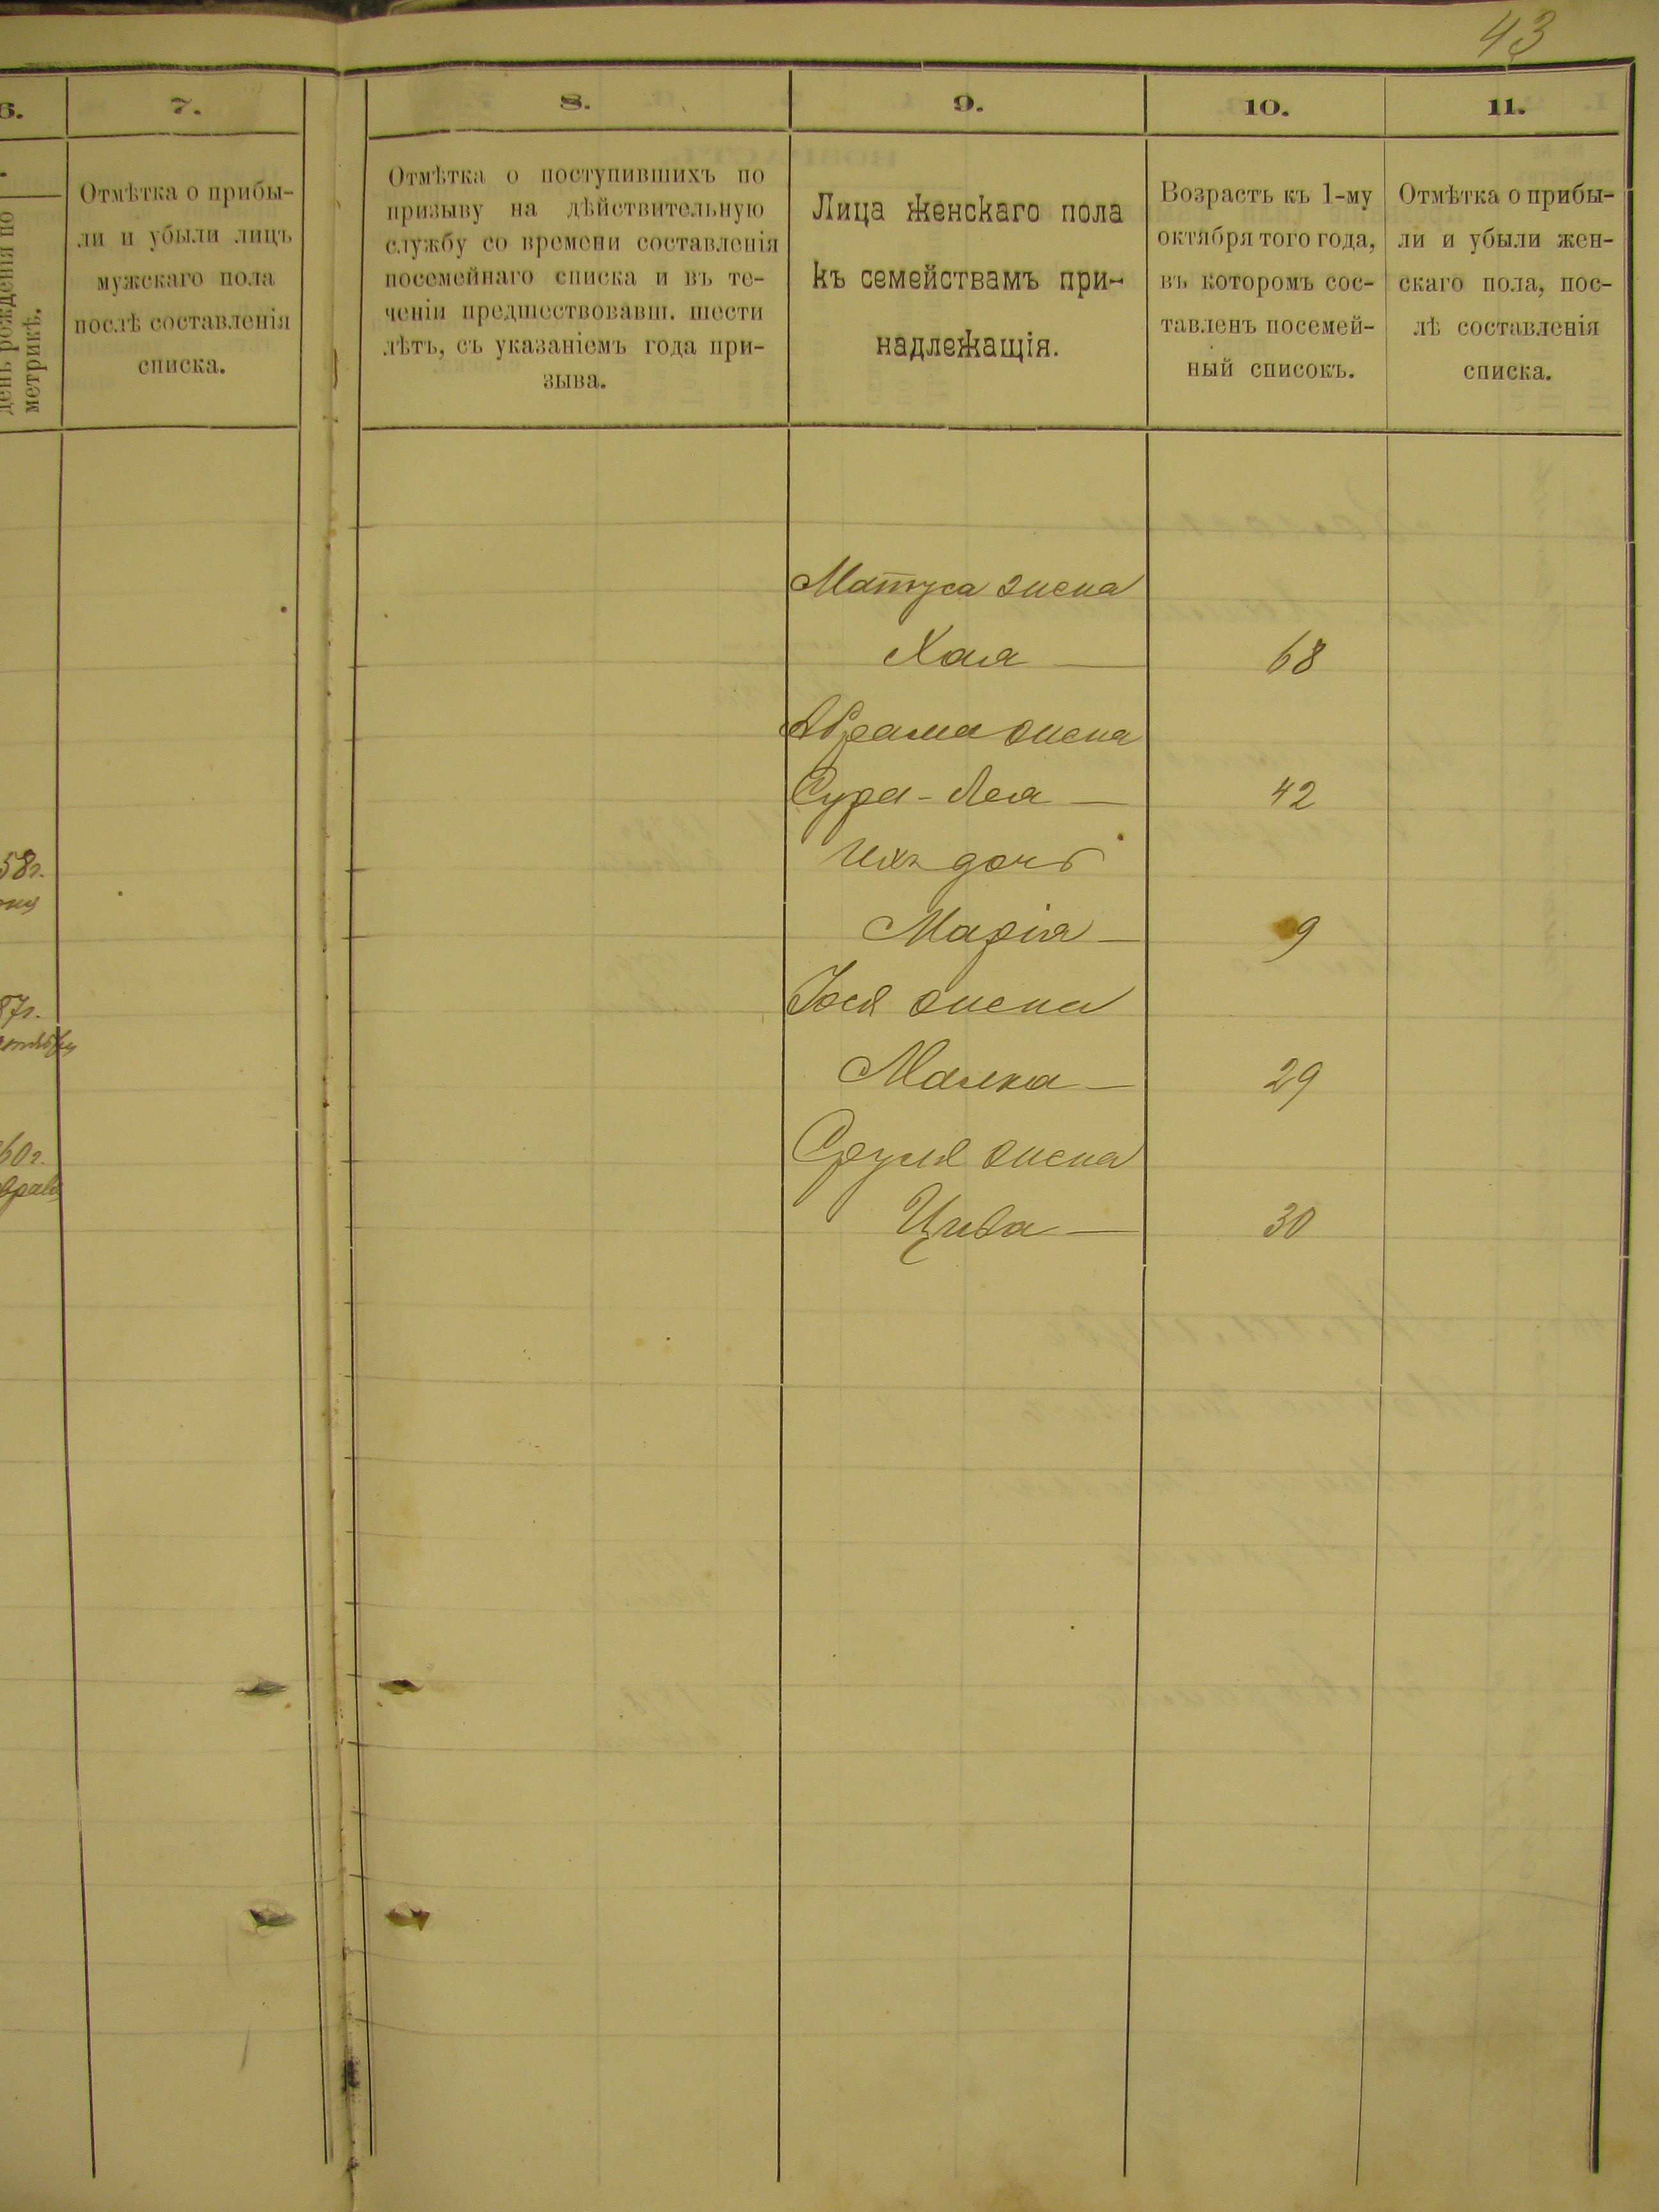 43
6.
7.
8.
9.
10.
11.
день рожденія по
метрикѣ.
Отмѣтка о прибы-
ли и убыли лицъ
мужскаго пола
послѣ составленія
списка.
Отмѣтка о поступившихъ по
призыву на дѣйствительную
службу со времени составленія
посемейнаго списка и въ те-
ченіи предшествовавш. шести
лѣтъ, съ указаніемъ года при-
зыва.
Лица женскаго пола
къ семействамъ при-
надлежащія.
Возрастъ къ 1-му
октября того года,
въ которомъ сос-
тавленъ посемей-
ный списокъ.
Отмѣтка о прибы-
ли и убыли жен-
скаго пола, пос-
лѣ составленія
списка.
Матуса жена
Хая — 68
Абрама жена
Сура-Лея — 42
58г.
Ихъ дочь
Марія — 9
87г.
Іося жена
Малка — 29
60г.
Сруля жена
Цива — 30